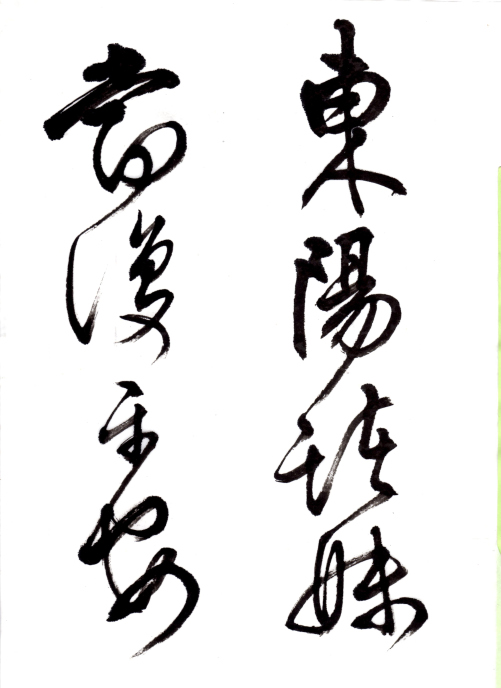 東陽妹
當復平安